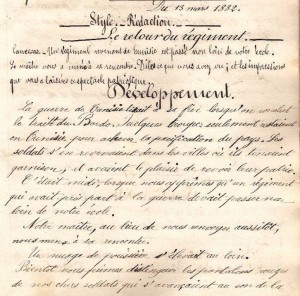 Du 13 mars 1882.
Style. - Rédaction.
Le retour du régiment.
Canevas. - Un régiment revenant de Tunisie est passé non loin de votre école.
Le maître vous a conduits à sa rencontre. Dites ce que vous avez vu, et les impressions
que vous a laissées ce spectacle patriotique.
Développement.
La guerre de Tunisie finit lorsqu'on conclut
le traité du Bardo. Quelques troupes seulement restèrent
en Tunisie pour la pacification du pays. Les
soldats s'en revenaient dans les villes où ils tenaient
garnison, et avaient le plaisir de revoir leur patrie.
C'était midi, lorsque nous apprîmes qu'un régiment
qui avait pris part à la guerre devait passer non
loin de notre école.
Notre maître, au lieu de nous envoyer aussitôt,
nous mena à sa rencontre.
Un nuage de poussière s'élevait au loin.
Bientôt nous pûmes distinguer les pantalons rouges
de nos chers soldats qui s'avançaient au son de la